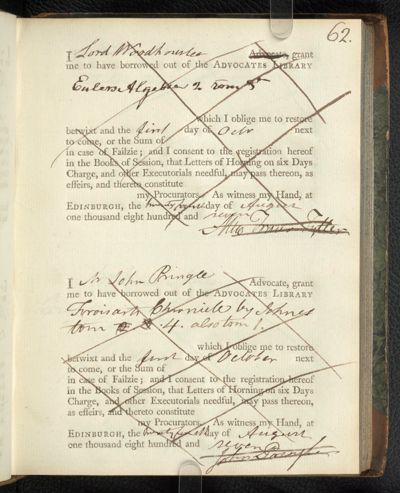 62.
I Lord Woodhouslee Advocate, grant
me to have borrowed out of the ADVOCATES LIBRARY
Eulers Algebra 2 tom
which I oblige me to restore
betwixt and the first day of Octr next
to come, or the Sum of
in case of Failzie; and I consent to the registration hereof
in the Books of Session, that Letters of Horning on six Days
Charge, and other Executorials needful, may pass thereon, as
effeirs, and thereto constitute
my Procurators. As witness my Hand, at
EDINBURGH, the day of August
one thousand eight hundred and seven
Alex Fraser Tytler
I Mr John Pringle Advocate, grant
me to have borrowed out of the ADVOCATES LIBRARY
Froisarts Chronicle by Johnes
tom 4. also tom 1.
which I oblige me to restore
betwixt and the first day of October next
to come, or the Sum of
in case of Failzie; and I consent to the registration hereof
in the Books of Session, that Letters of Horning on six Days
Charge, and other Executorials needful, may pass thereon,
as effeirs, and thereto constitute
my Procurators. As witness my Hand, at
EDINBURGH, the day of August
one thousand eight hundred and seven
John Pringle